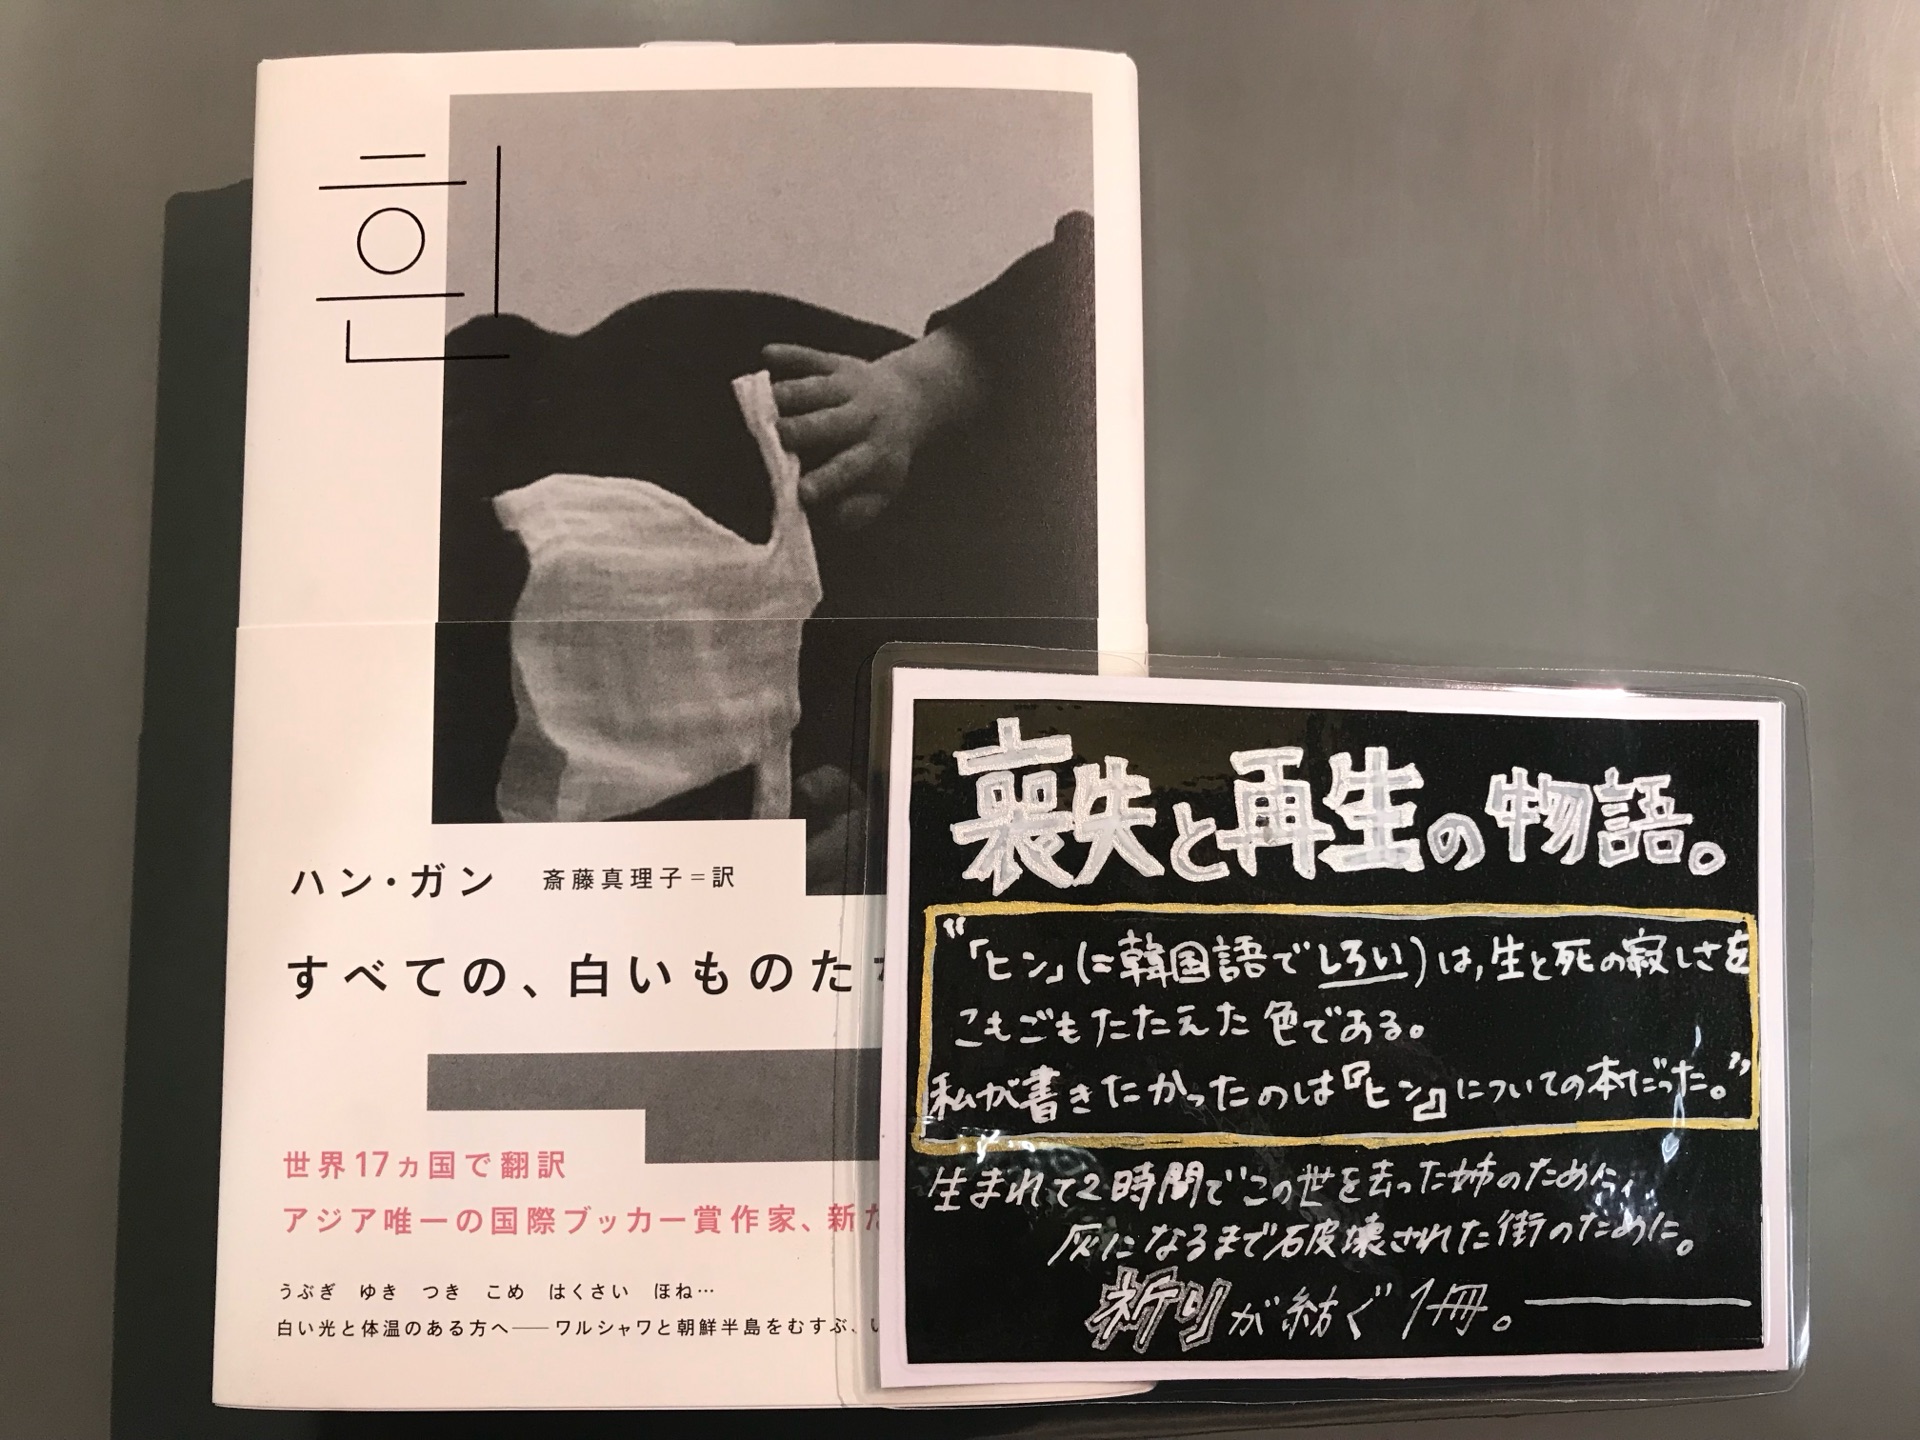 흰
ハン・ガン 斎藤真理子=訳
すべての、白いものた
世界17ヵ国で翻訳
アジア唯一の国際ブッカー賞作家、新た
うぶぎ ゆき つき こめ はくさい ほね…
白い光と体温のある方へ——ワルシャワと朝鮮半島をむすぶ、い
喪失と再生の物語。
“「ヒン」(=韓国語でしろい)は,生と死の寂しさを
こもごもたたえた色である。
私が書きたかったのは『ヒン』についての本だった。”
生まれて2時間でこの世を去った姉のために,
灰になるまで破壊された街のために。
祈りが紡ぐ1冊。